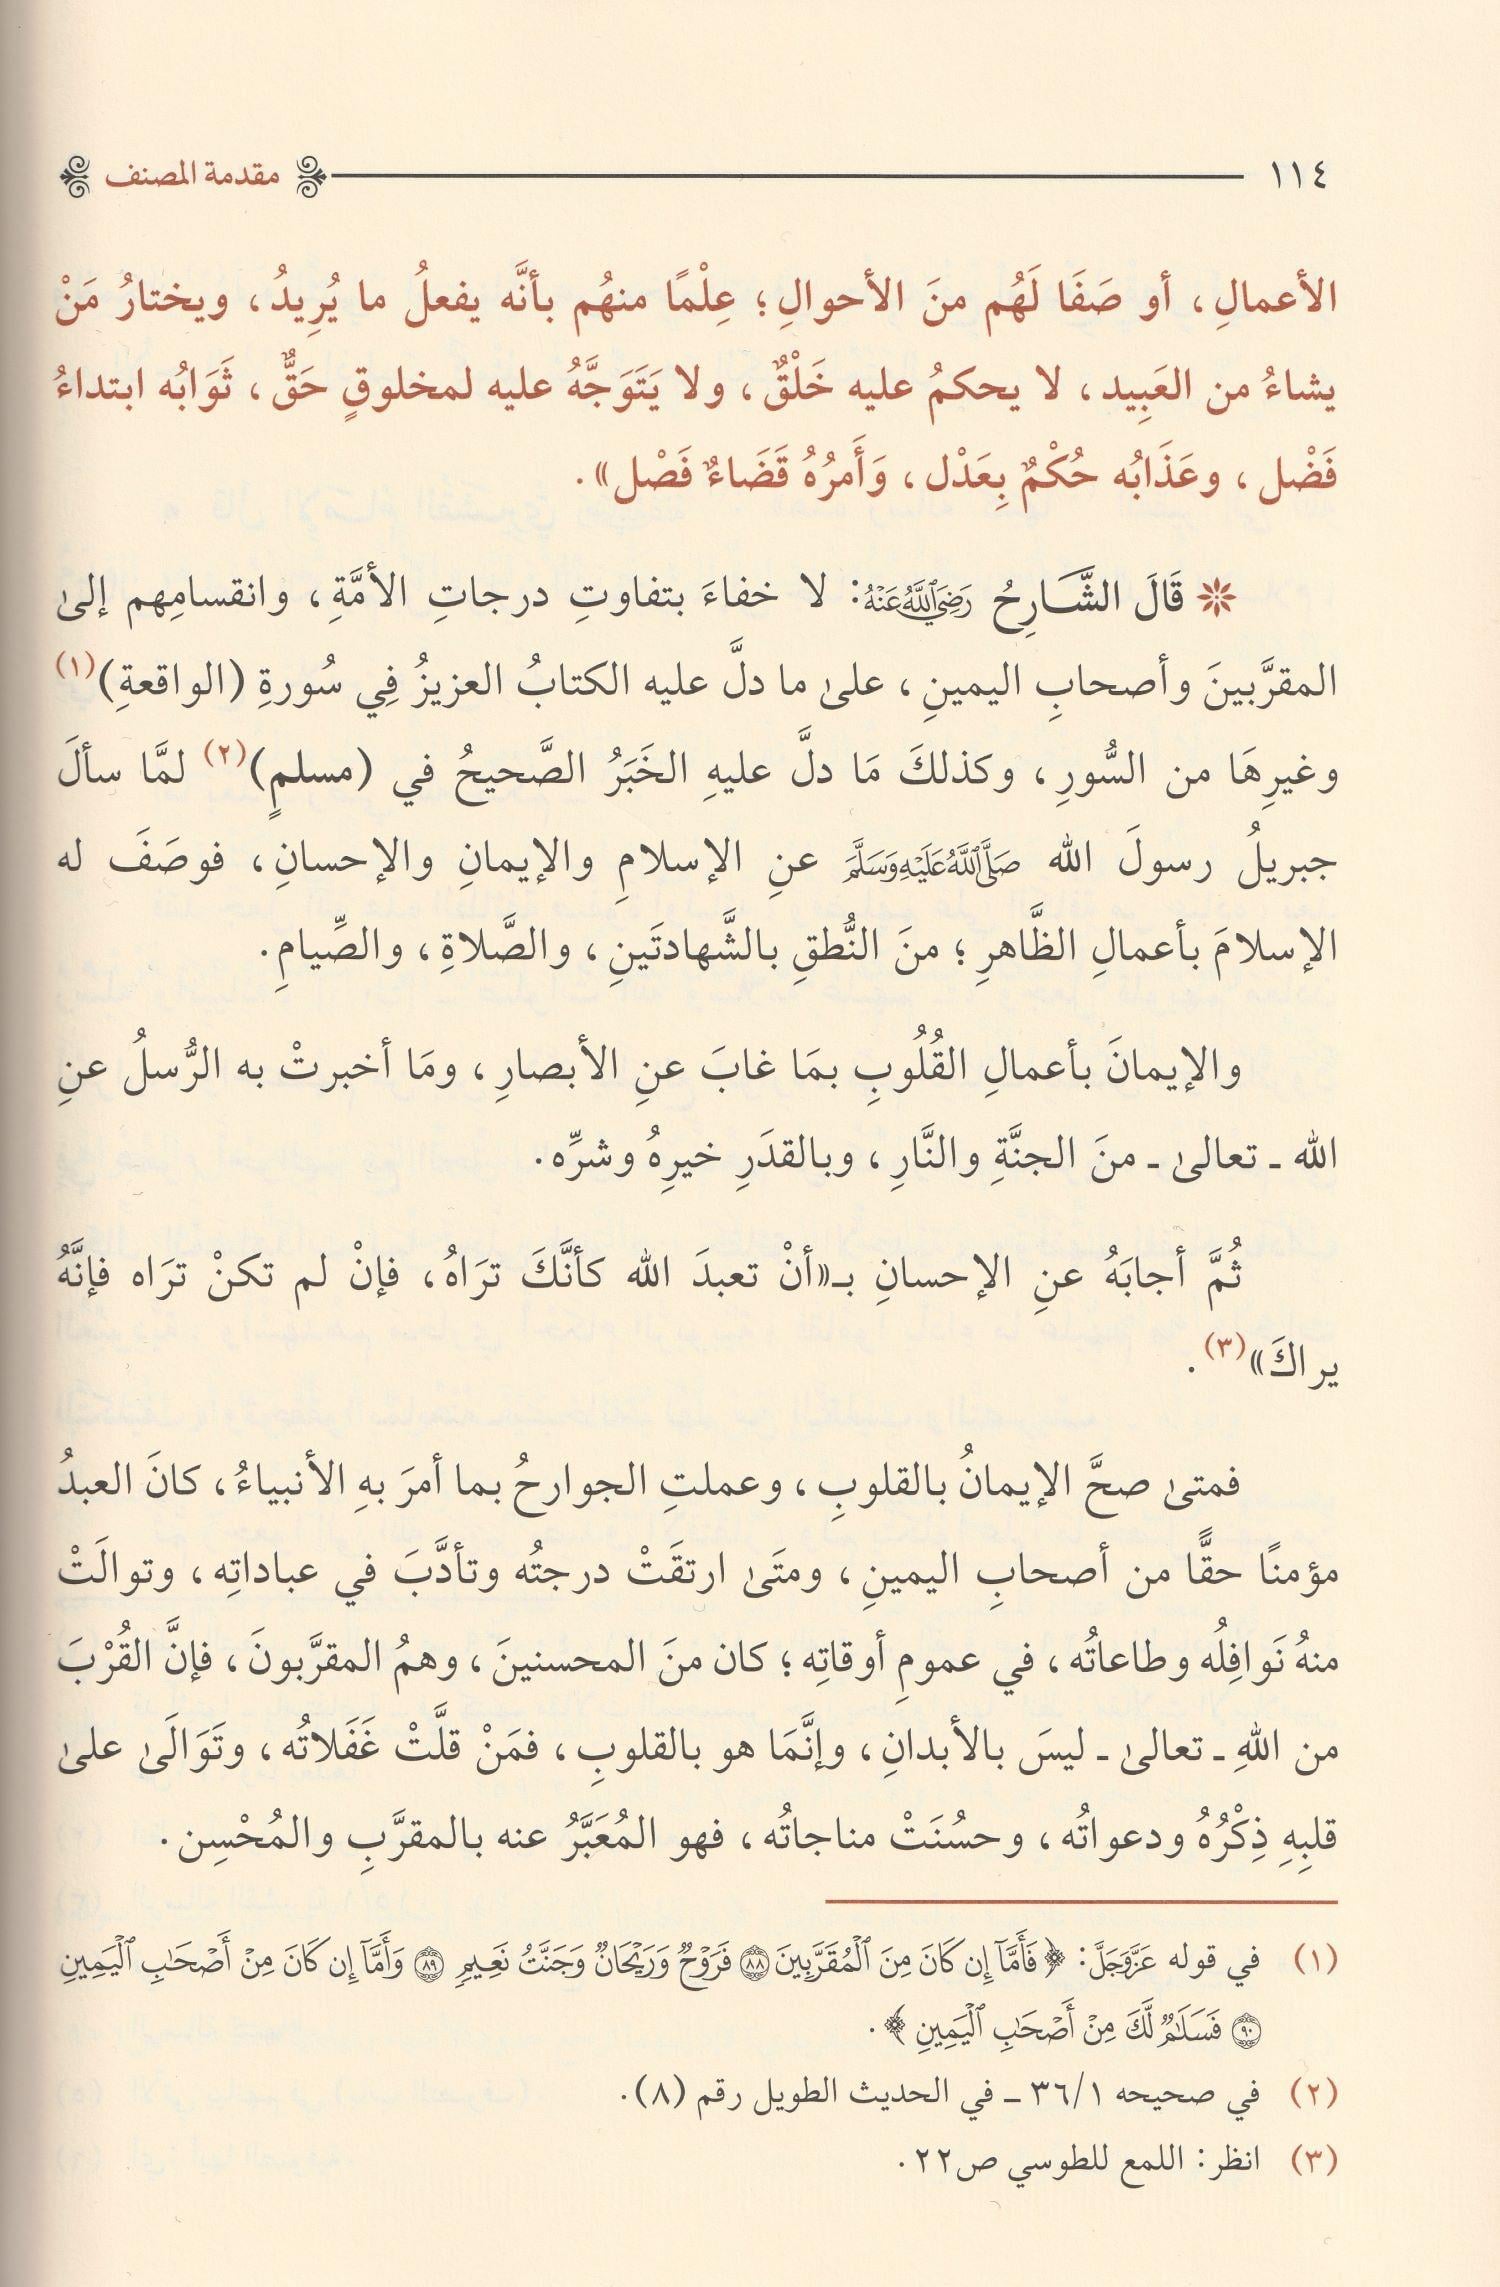 ١١٤ مقدمة المصنف
الأعمالِ، أو صَفَا لَهُم منَ الأحوالِ؛ عِلْمًا منهُم بأنَّه يفعلُ ما يُرِيدُ، ويختارُ مَنْ
يشاءُ من العَبِيد، لا يحكمُ عليه خَلْقٌ، ولا يَتَوَجَّهُ عليه لمخلوقٍ حَقٌّ، ثَوَابُه ابتداءُ
فَضْل، وعَذَابُه حُكْمٌ بِعَدْل، وَأَمرُهُ قَضَاءٌ فَصْل».
قَالَ الشَّارِحُ رَضِيَ اللَّهُ عَنْهُ: لا خفاءَ بتفاوتِ درجاتِ الأمَّةِ، وانقسامِهم إلىٰ
المقرَّبينَ وأصحابِ اليمينِ، علىٰ ما دلَّ عليه الكتابُ العزيزُ فِي سُورةِ (الواقعةِ)(١)
وغيرِهَا من السُّورِ، وكذلكَ مَا دلَّ عليهِ الخَبَرُ الصَّحيحُ في (مسلمٍ)(٢) لمَّا سألَ
جبريلُ رسولَ الله صَلَّى اللَّهُ عَلَيْهِ وَسَلَّمَ عنِ الإسلامِ والإيمانِ والإحسانِ، فوصَفَ له
الإسلامَ بأعمالِ الظَّاهرِ؛ منَ النُّطقِ بالشَّهادتَينِ، والصَّلاةِ، والصِّيامِ.
والإيمانَ بأعمالِ القُلُوبِ بمَا غابَ عنِ الأبصارِ، ومَا أخبرتْ به الرُّسلُ عنِ
الله ـ تعالىٰ ـ منَ الجنَّةِ والنَّارِ، وبالقدَرِ خيرِهُ وشرِّه.
ثُمَّ أجابَهُ عنِ الإحسانِ بـ«أنْ تعبدَ الله كأنَّكَ ترَاهُ، فإنْ لم تكنْ ترَاه فإنَّهُ
يراكَ»(٣).
فمتىٰ صحَّ الإيمانُ بالقلوبِ، وعملتِ الجوارحُ بما أمرَ بهِ الأنبياءُ، كانَ العبدُ
مؤمنًا حقًّا من أصحابِ اليمينِ، ومتَىٰ ارتقَتْ درجتُه وتأدَّبَ في عباداتِه، وتوالَتْ
منهُ نَوافِلُه وطاعاتُه، في عمومِ أوقاتِه؛ كان منَ المحسنينَ، وهمُ المقرَّبونَ، فإنَّ القُرْبَ
من اللهِ ـ تعالىٰ ـ ليسَ بالأبدانِ، وإنَّمَا هو بالقلوبِ، فمَنْ قلَّتْ غَفَلاتُه، وتَوَالَىٰ علىٰ
قلبِهِ ذِكْرُهُ ودعواتُه، وحسُنَتْ مناجاتُه، فهو المُعَبَّرُ عنه بالمقرَّبِ والمُحْسِن.
(١) في قوله عَزَّ وَجَلَّ: ﴿فَأَمَّآ إِن كَانَ مِنَ ٱلْمُقَرَّبِينَ ٨٨ فَرَوْحٌ وَرَيْحَانٌ وَجَنَّتُ نَعِيمٍ ٨٩ وَأَمَّآ إِن كَانَ مِنْ أَصْحَٰبِ ٱلْيَمِينِ
٩٠ فَسَلَٰمٌ لَّكَ مِنْ أَصْحَٰبِ ٱلْيَمِينِ﴾.
(٢) في صحيحه ٣٦/١ ـ في الحديث الطويل رقم (٨).
(٣) انظر: اللمع للطوسي ص٢٢.